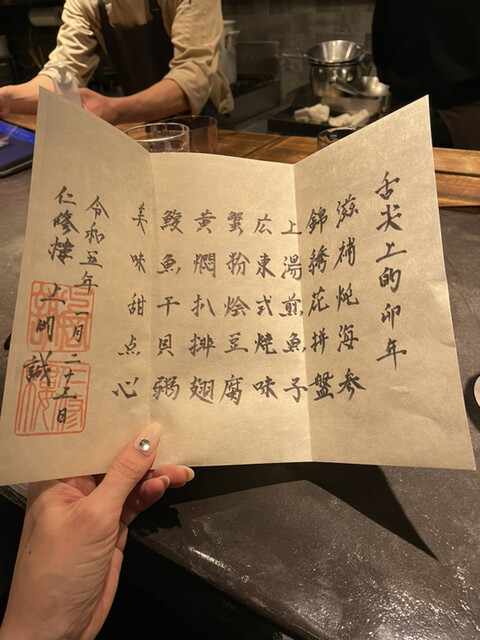 舌尖上的卯年
滋補炖海参
錦繡花拼盤
上湯煎魚子
広東式焼味
蟹粉烩豆腐
黄燜扒排翅
鮑魚干貝粥
美味甜点心
令和五年一月二十三日
仁修樓 上岡誠